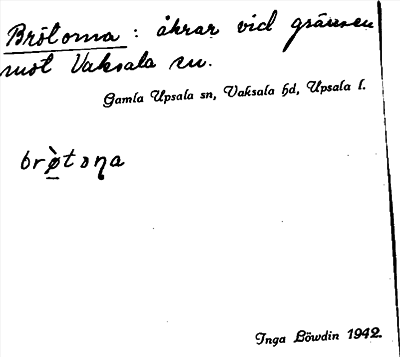 Brötorna : åkrar vid gränsen
mot Vaksala sn.
Gamla Upsala sn, Vaksala hd, Upsala l.
brø̀tɔɳa
Inga Löwdin 1942.